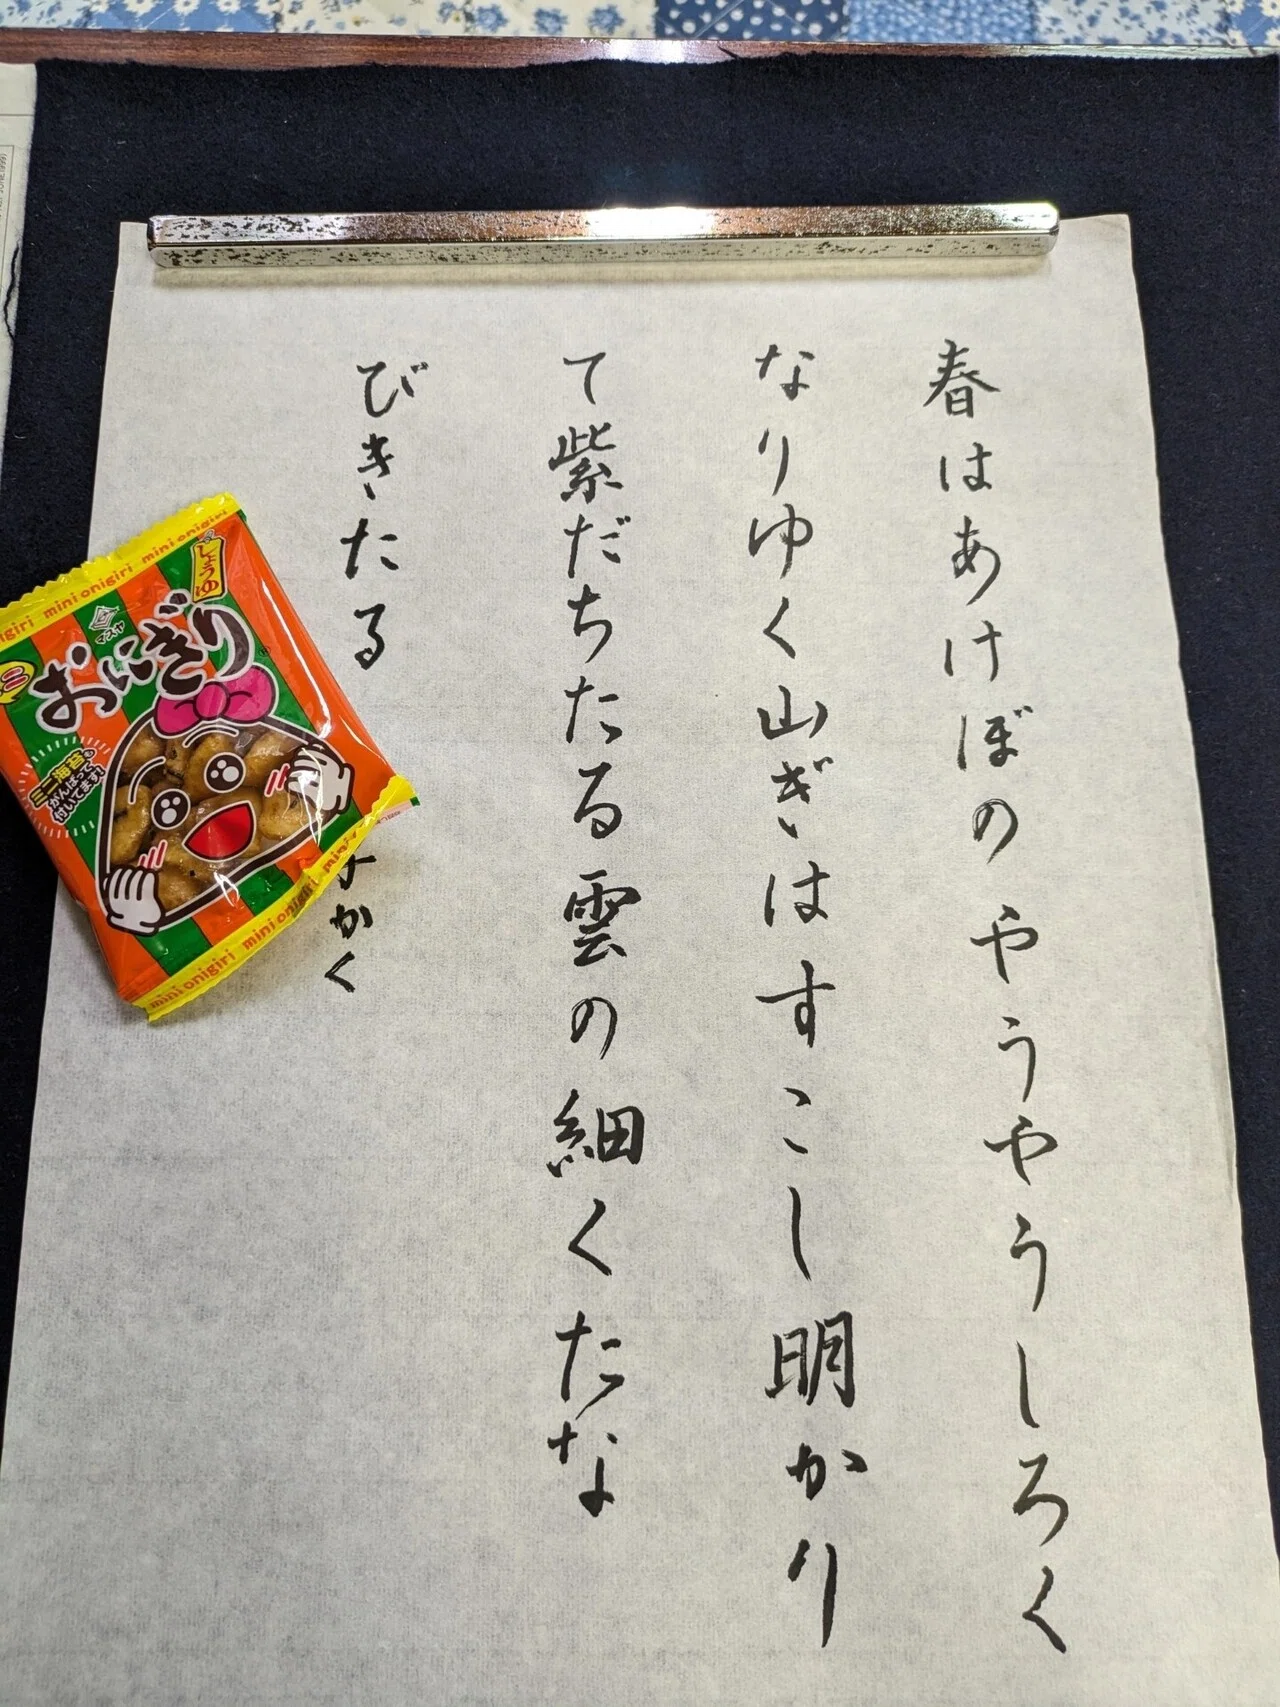 春はあけぼのやうやうしろく
なりゆく山ぎはすこし明かり
て紫だちたる雲の細くたな
びきたる
かく
mini onigiri mini onigiri
しょうゆ
マスヤ
おにぎり
ミニ
ミニ海苔も
がんばって
付いてます!
mini onigiri mini onigiri